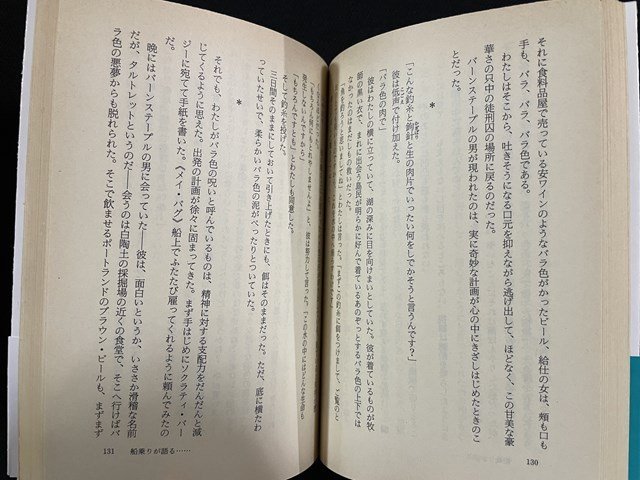 それに食料品屋で売っている安ワインのようなバラ色がかったビール、給仕の女は、頬も口も
手も、バラ、バラ、バラ色である。
わたしはそこから、吐きそうになる口元を抑えながら逃げ出して、ほどなく、この甘美な豪
華さの只中の徒刑囚の場所に戻るのだった。
バーンステーブルの男が現われたのは、実に奇妙な計画が心の中にきざしはじめたときのこ
とだった。
*
「こんな釣糸と鉤針と生の肉片でいったい何をしでかそうと言うんです？」
彼は低声で付け加えた。
「バラ色の肉で」
彼はわたしの横に立っていて、湖の深みに目を向けまいとしていた。彼が着ているものが牧
師の黒い犬で、まれに出会う島民が明らかに好んで着ているあのぞっとするバラ色の上下では
なかったのはまだしもの救いだった。
「魚を釣ろうと思いましてね」とわたしは言った。
130
発生しないんですから」
「もちろんですとも」とわたしも同意した。
そして釣糸を投げた。
三日間そのままにしておいて引き上げたときにも、餌はそのままだった。ただ、底に横たわ
っていたせいで、柔らかいバラ色の泥がべったりとついていた。
*
それでも、わたしがバラ色の呪いと呼んでいるものは、精神に対する支配力をだんだんと減
じてくるように思えた。出発の計画が徐々に固まってきた。まず手はじめにソクラティ・バー
ジーに宛てて手紙を書いた。《メイ・バグ》船上でふたたび雇ってくれるように頼んでみたの
だ。
晩にはバーンステーブルの男に会っていた――彼は、面白いというか、いささか滑稽な名前
だが、タルトレットというのだ――会うのは白陶土の採掘場の近くの食堂で、そこへ行けばバ
ラ色の悪夢からも脱れられた。そこで飲ませるポートランドのブラウン・ビールも、まずまず
131 船乗りが語る……